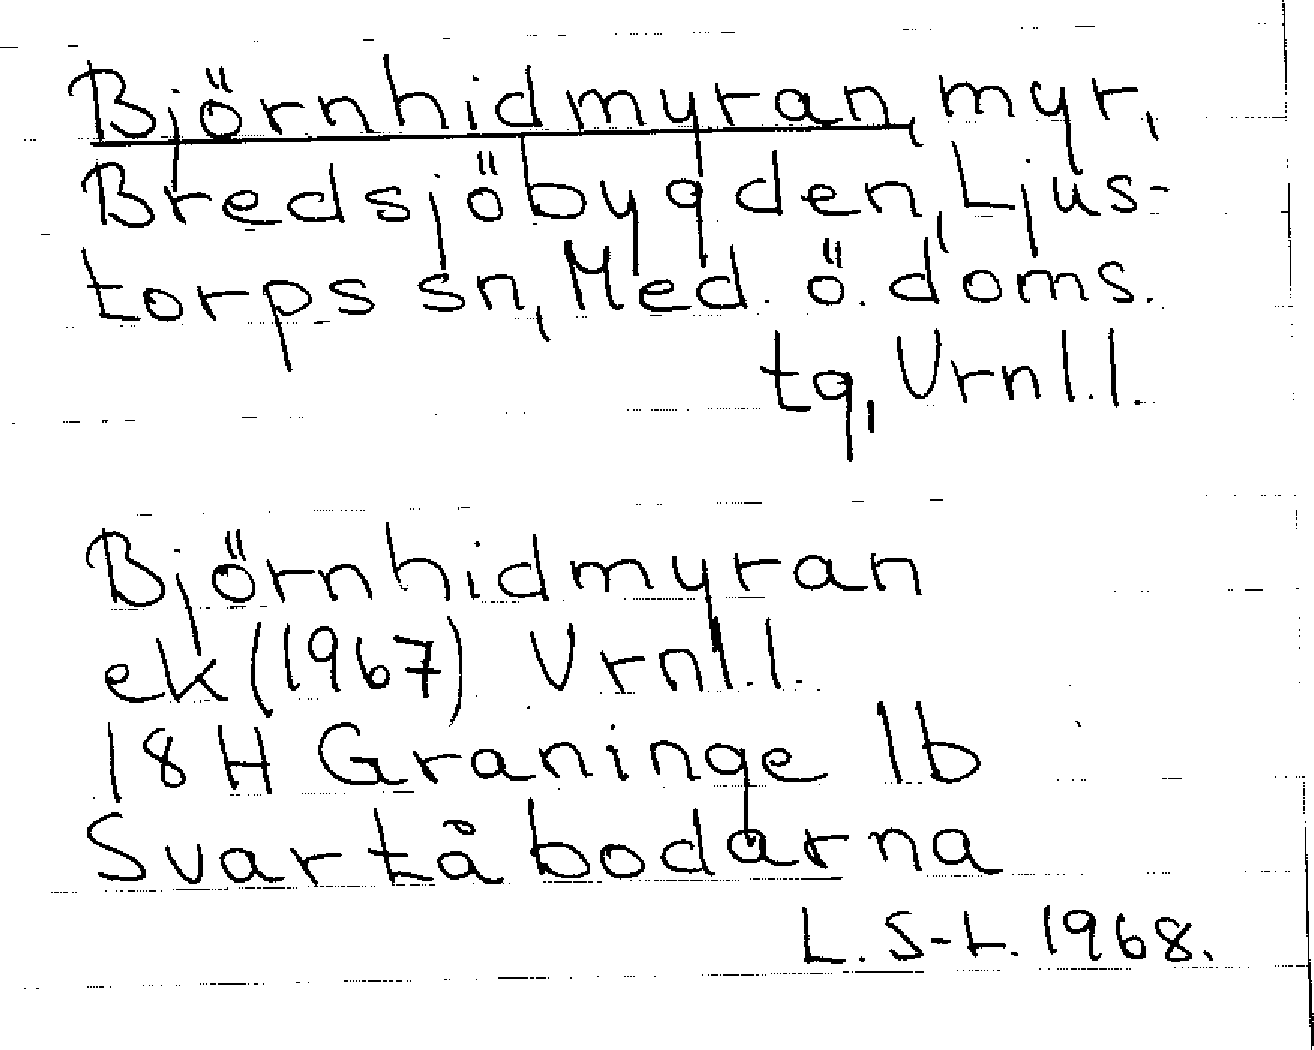 Björnhidmyran, myr,
Bredsjöbygden, Ljus-
torps sn, Med. ö. doms.
tg, Vrnl.l.
Björnhidmyran
ek (1967) Vrnl.l.
18H Graninge 1b
Svartåbodarna
L. S-L. 1968.